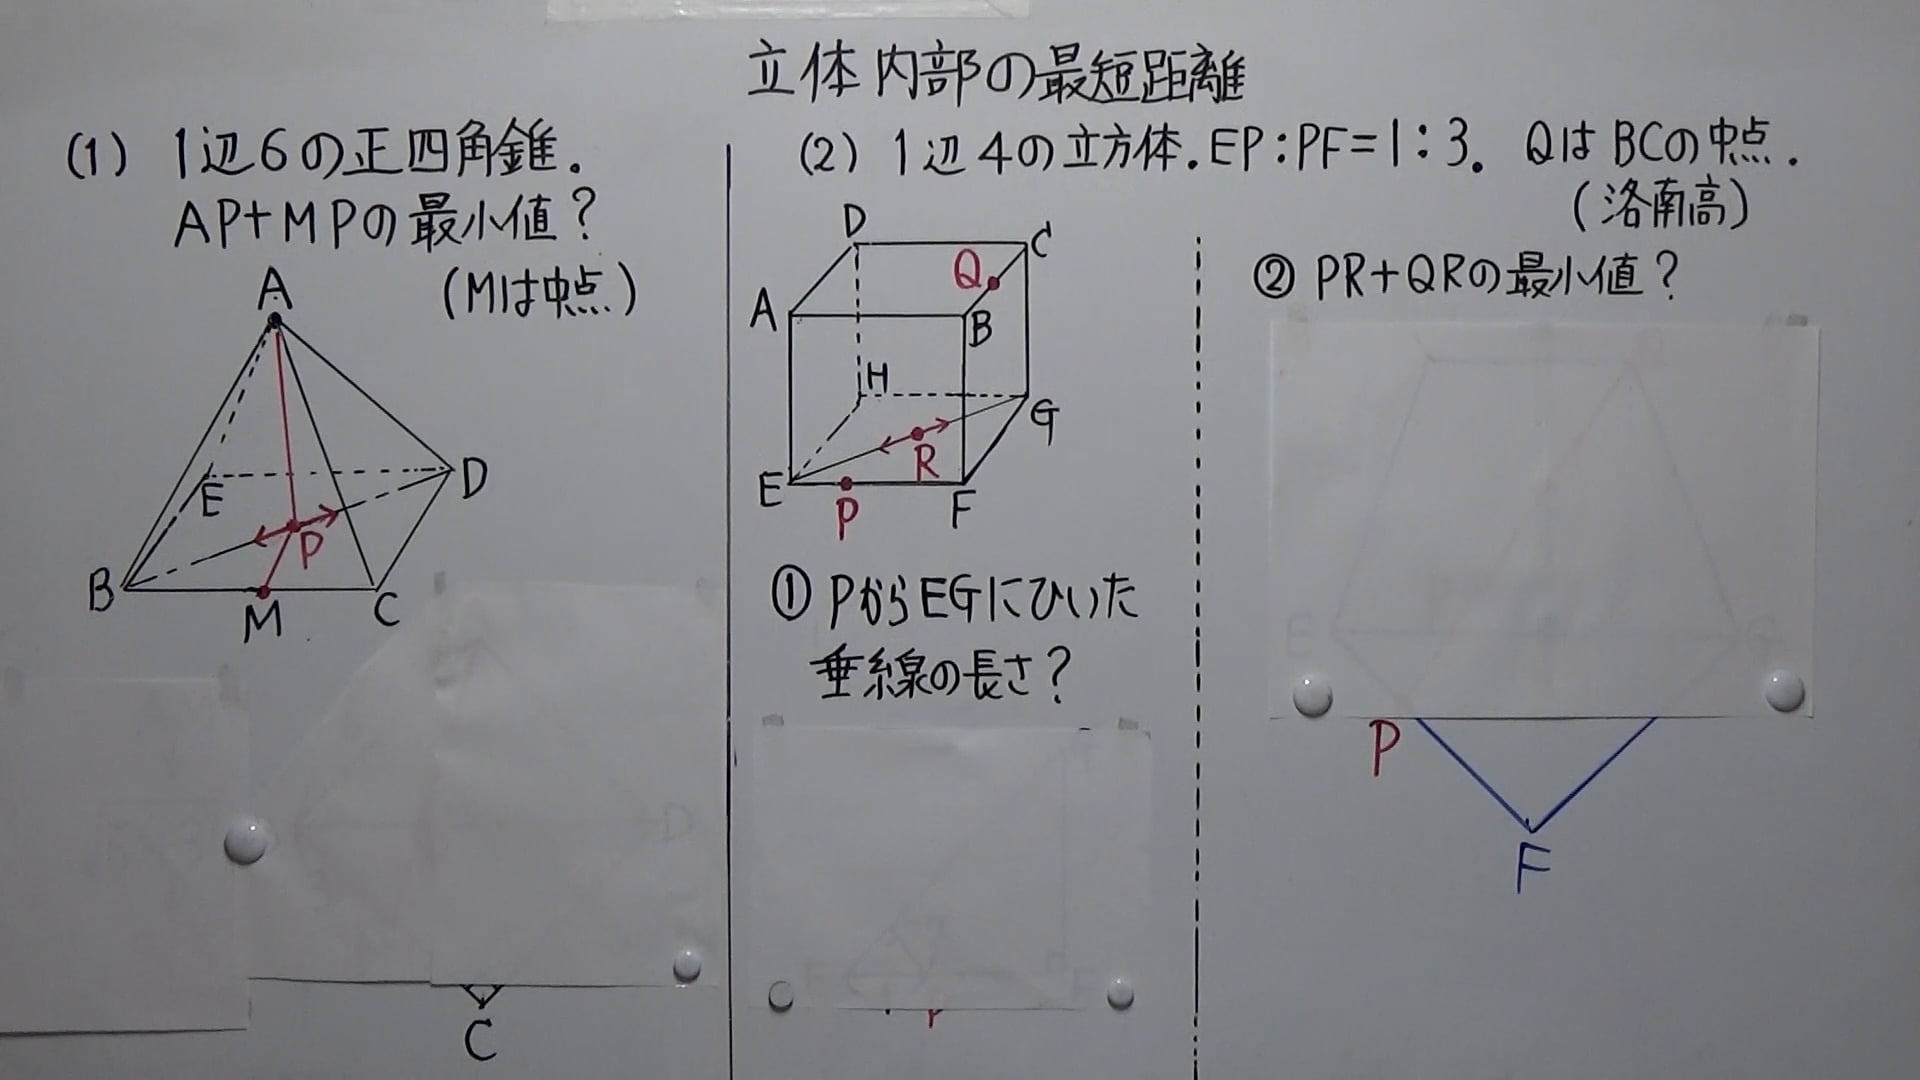 立体内部の最短距離
(1) 1辺6の正四角錐.
AP+MPの最小値?
(Mは中点)
A
E
D
P
B
M
C
D
C
(2) 1辺4の立方体. EP:PF=1:3. QはBCの中点.
(洛南高)
D
C
Q
A
B
H
G
R
E
P
F
① PからEGにひいた
垂線の長さ?
E
F
P
② PR+QRの最小値?
E
G
P
F